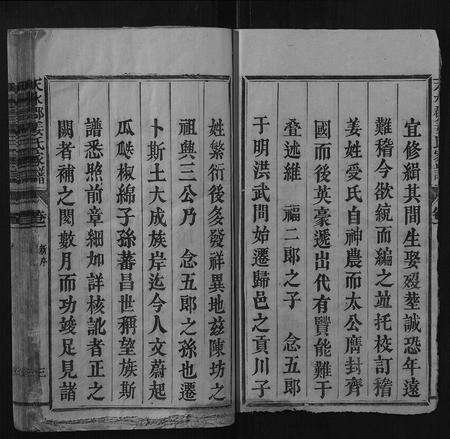 宜修緝其間生娶歿塟誠恐年遠
難稽今欲統而編之並托校訂稽
姜姓爰氏自神農而太公膺封齊
國而後英豪遞出代有賢能難于
叠述維福二郎之子念五郎
于明洪武間始遷歸邑之貢川子
姓繁衍後多發祥異地茲陳坊之
祖興三公乃念五郎之孫也遷
卜斯土大成族岸迄今人文蔚起
瓜瓞椒綿子孫蕃昌世稱望族斯
譜悉照前章細加詳核訛者正之
闕者補之閱數月而功竣足見諸
天水郡姜氏家譜
卷一
新序
三